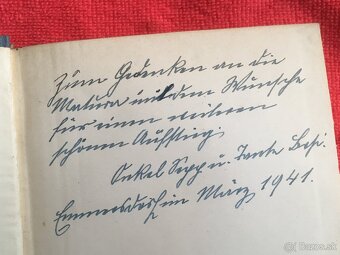 Zum Gedenken an die
Matura und dem Wunsche
für einen weiteren
schönen Aufstieg.
Onkel Sepp u. Tante Resi.
Emmersdorf im März 1941.
bazar.sk